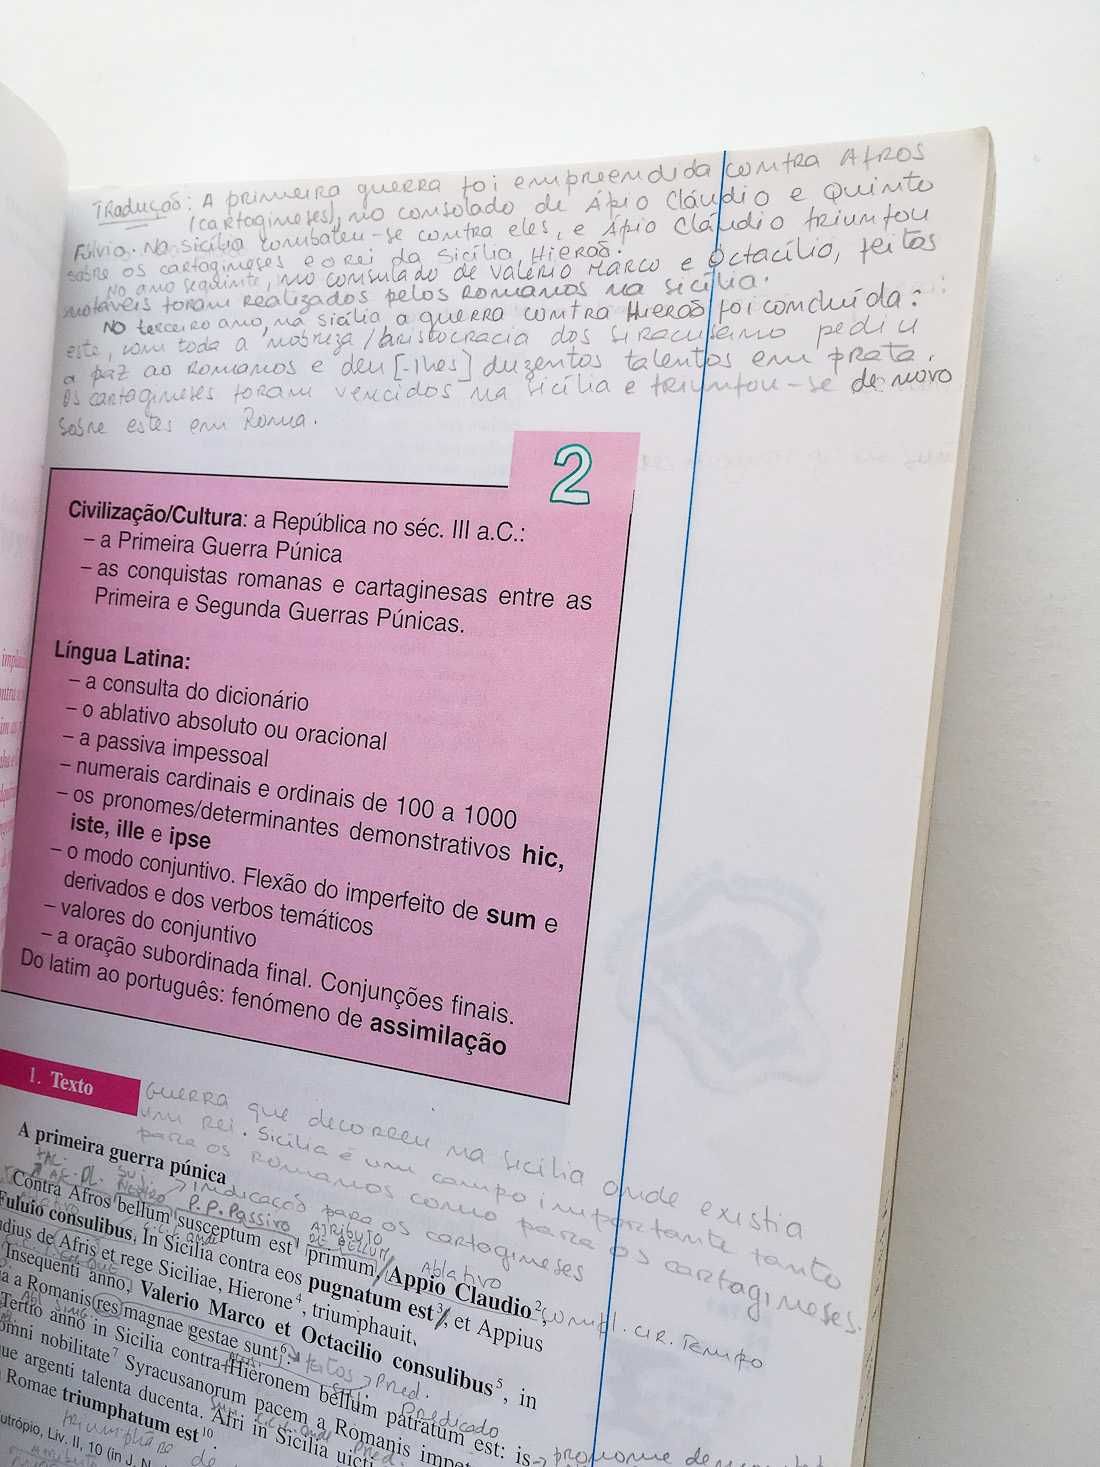 Tradução: A primeira guerra foi empreendida contra Afros
(cartagineses), no consolado de Ápio Cláudio e Quinto
Fúlvio. Na Sicília combateu-se contra eles, e Ápio Cláudio triunfou
sobre os cartagineses e o rei da Sicília, Hierão.
No ano seguinte, no consulado de Valério Marco e Octacílio, feitos
notáveis foram realizados pelos Romanos na Sicília.
No terceiro ano, na Sicília a guerra contra Hierão foi concluída:
este, com toda a nobreza/aristocracia dos Siracusano pediu
a paz ao Romanos e deu [-lhes] duzentos talentos em prata.
Os cartagineses foram vencidos na Sicília e triunfou-se de novo
sobre estes em Roma.
2
Civilização/Cultura: a República no séc. III a.C.:
– a Primeira Guerra Púnica
– as conquistas romanas e cartaginesas entre as
Primeira e Segunda Guerras Púnicas.
Língua Latina:
– a consulta do dicionário
– o ablativo absoluto ou oracional
– a passiva impessoal
– numerais cardinais e ordinais de 100 a 1000
– os pronomes/determinantes demonstrativos hic,
iste, ille e ipse
– o modo conjuntivo. Flexão do imperfeito de sum e
derivados e dos verbos temáticos
– valores do conjuntivo
– a oração subordinada final. Conjunções finais.
Do latim ao português: fenómeno de assimilação
1. Texto
Guerra que decorreu na Sicília onde existia
um rei. Sicília é um campo importante tanto
para os Romanos como para os cartagineses.
A primeira guerra púnica
indicação para os cartagineses
P.P. Passivo
Atributo
de bellum
Ablativo
Contra Afros bellum susceptum est primum Appio Claudio²
compl. cir. Tempo
Fuluio consulibus. In Sicilia contra eos pugnatum est³, et Appius
de Afris et rege Siciliae, Hierone⁴, triumphauit.
Insequenti anno, Valerio Marco et Octacilio consulibus⁵, in
a Romanis res magnae gestae sunt⁶.
feitos
Pred.
Tertio anno in Sicilia contra Hieronem bellum patratum est: is
Predicado
nobilitate⁷ Syracusanorum pacem a Romanis
argenti talenta ducenta. Afri in Sicilia uicti
Romae triumphatum est¹⁰.
Liv. II, 10 (in J. N.
pronome